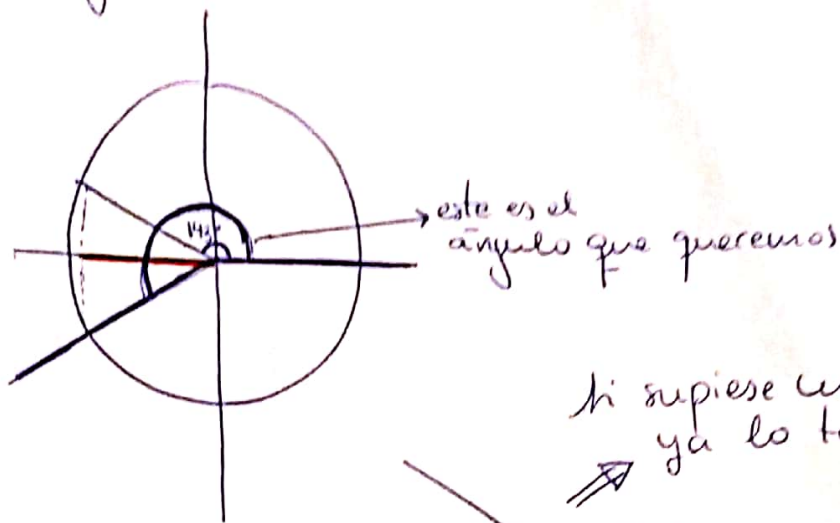 este es el
ángulo que queremos
si supiese
ya lo